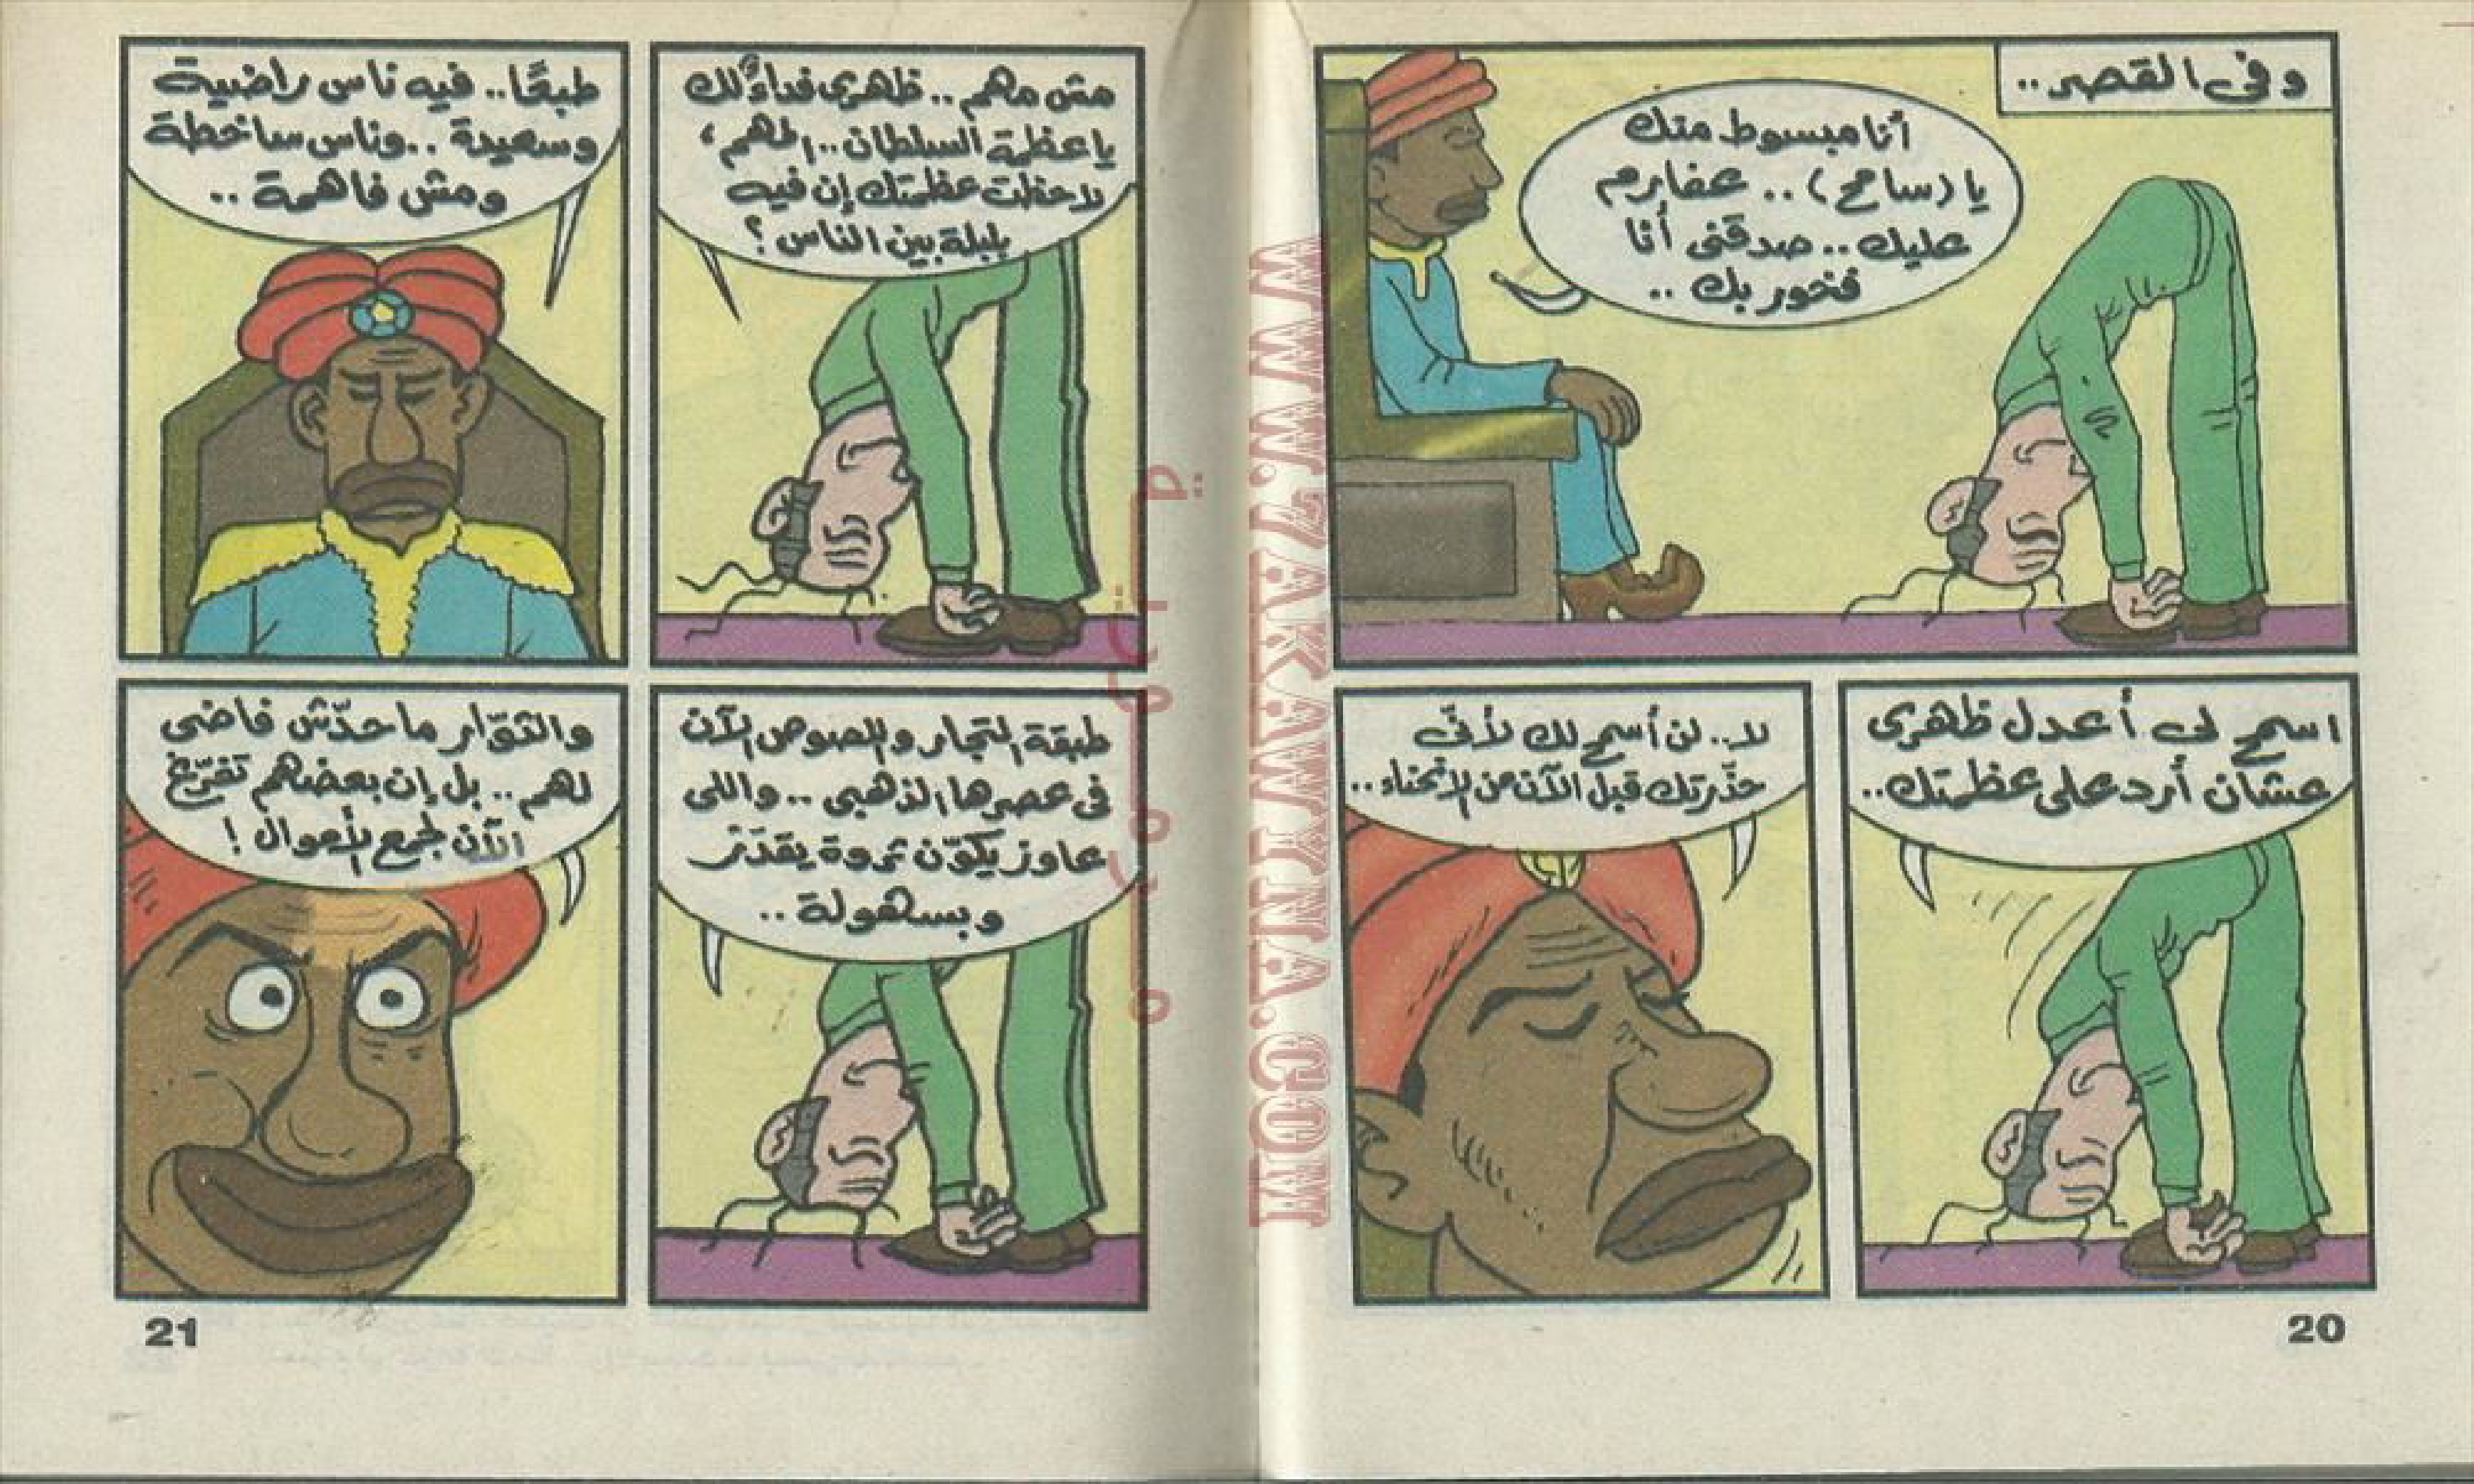 وفى القصر..
أنا مبسوط منك
يا (سامح).. عفارم
عليك.. صدقنى أنا
فخور بك..
اسمح لى أعدل ظهرى
عشان أرد على عظمتك..
لا.. لن أسمح لك لأنّى
حذّرتك قبل الآن من الإنحناء..
20
مش مهم.. ظهرى فداءً لك
يا عظمة السلطان.. المهم،
لاحظت عظمتك إن فيه
بلبلة بين الناس؟
طبعًا.. فيه ناس راضية
وسعيدة.. وناس ساخطة
ومش فاهمة..
طبقة التجار واللصوص الآن
فى عصرها الذهبى.. واللى
عاوز يكوّن ثروة يقدر
وبسهولة..
والثوّار ما حدّش فاضى
لهم.. بل إن بعضهم تفرّغ
الآن لجمع الأموال!
21
WWW.7AKAWYNA.COM